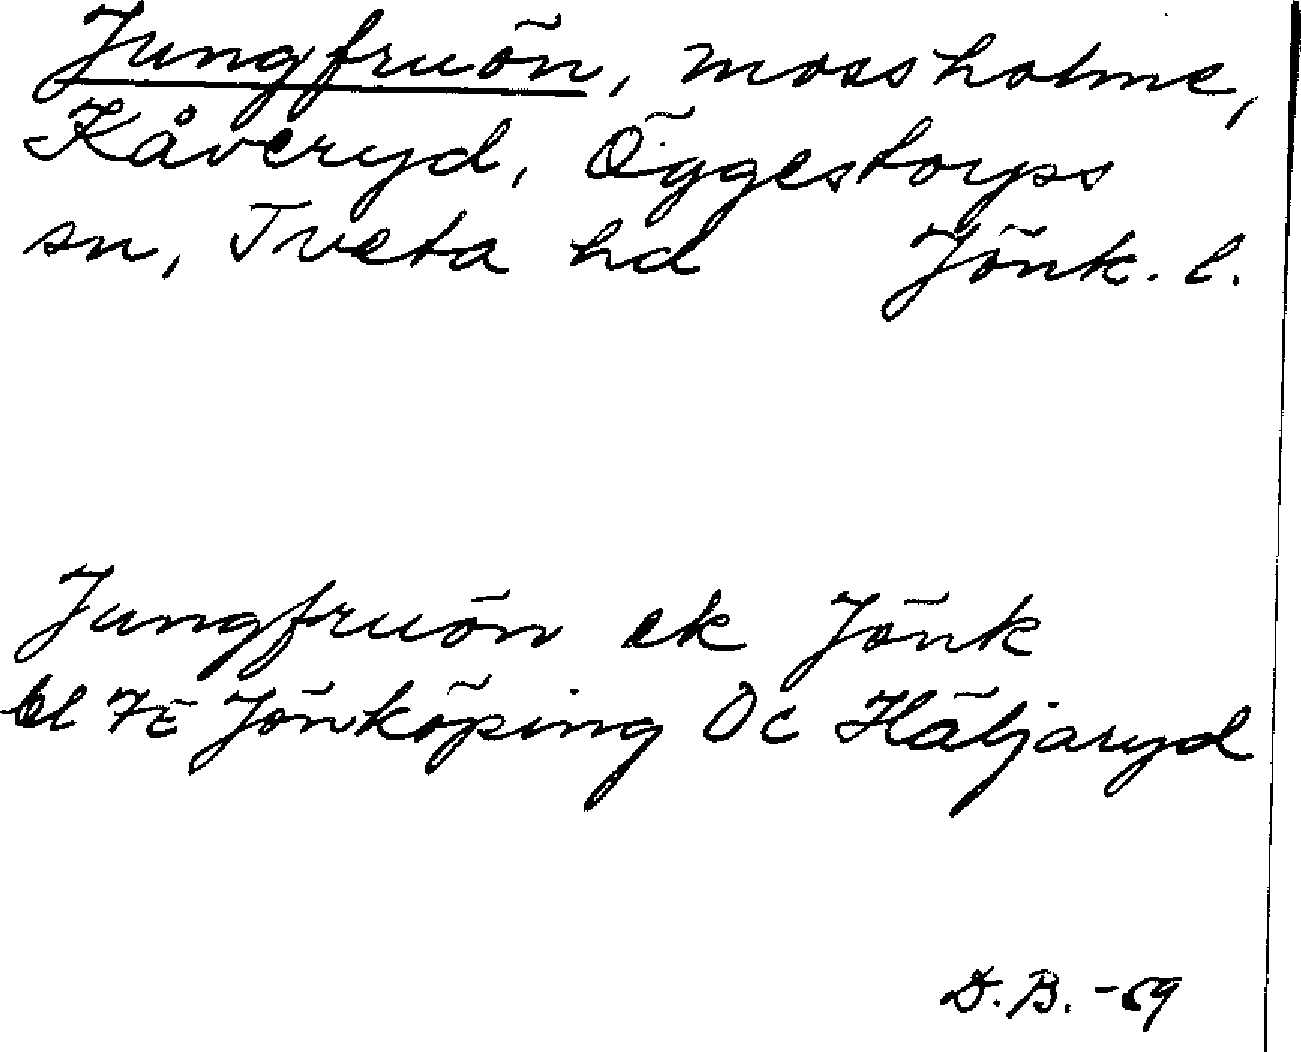 Jungfruön, mossholme,
Kåveryd, Öggestorps
sn, Tveta hd Jönk. l.
Jungfruön ek Jönk
bl 7E Jönköping 0c Häljaryd
D.B. -69